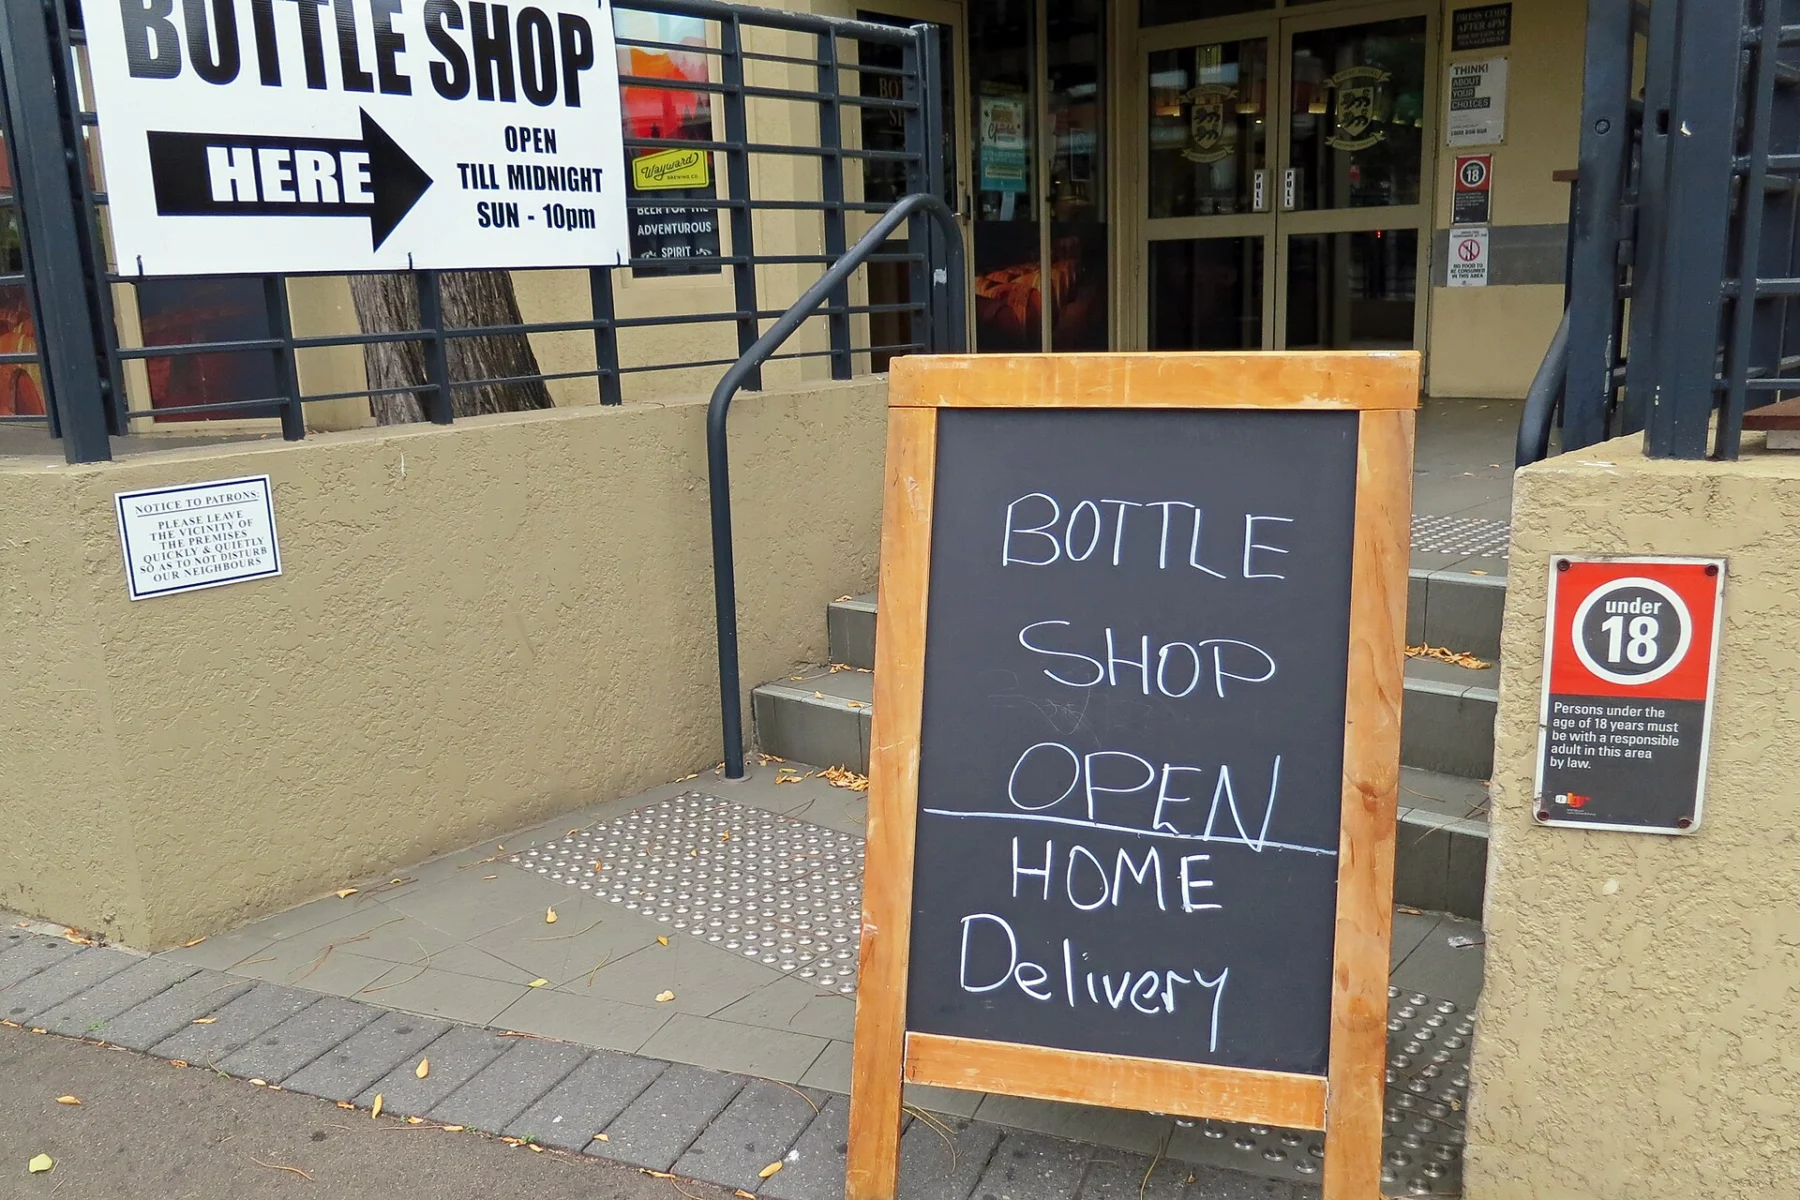 BOTTLE SHOP
HERE
OPEN
TILL MIDNIGHT
SUN - 10pm
Wayward
BREWING CO.
BEER FOR THE
ADVENTUROUS
SPIRIT
NOTICE TO PATRONS:
PLEASE LEAVE
THE VICINITY OF
THE PREMISES
QUICKLY & QUIETLY
SO AS TO NOT DISTURB
OUR NEIGHBOURS
PULL
PULL
DRESS CODE
AFTER 6PM
MANAGEMENT
THINK!
ABOUT
YOUR
CHOICES
18
NO FOOD TO
BE CONSUMED
IN THIS AREA
BOTTLE
SHOP
OPEN
HOME
Delivery
under
18
Persons under the
age of 18 years must
be with a responsible
adult in this area
by law.